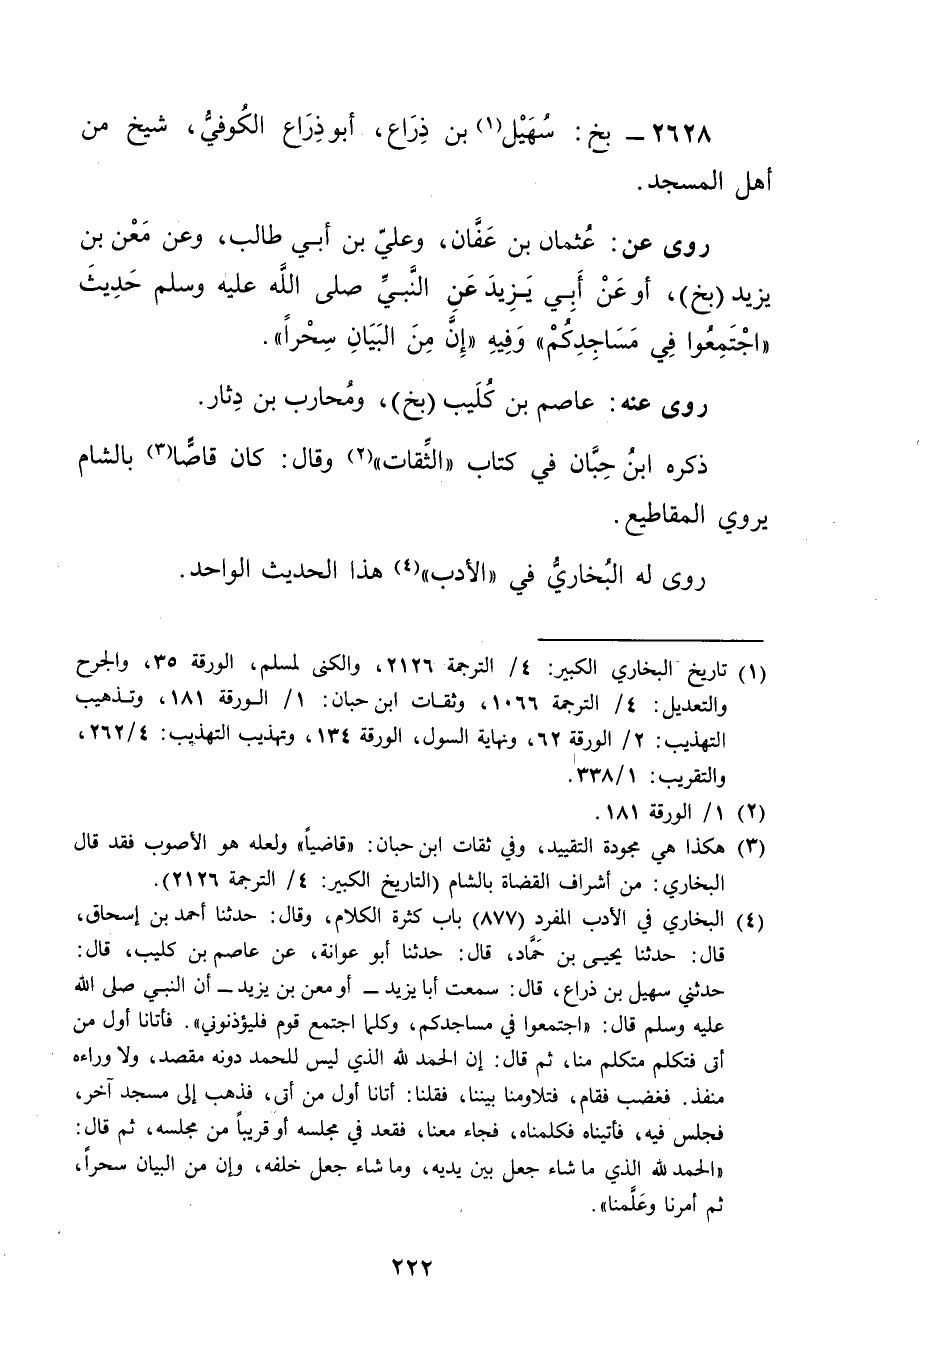 ٢٦٢٨ ــ بخ: سُهَيْل(١) بن ذِرَاع، أبو ذِرَاع الكُوفيُّ، شيخ من
أهل المسجد.
روى عن: عُثمان بن عَفَّان، وعليّ بن أبي طالب، وعن مَعْن بن
يزيد (بخ)، أو عَنْ أَبِي يَزِيدَ عَنِ النَّبيِّ صلى اللَّه عليه وسلم حَدِيثَ
«اجْتَمِعُوا فِي مَسَاجِدِكُمْ» وَفِيهِ «إِنَّ مِنَ البَيَانِ سِحْراً».
روى عنه: عاصم بن كُلَيب (بخ)، ومُحارب بن دِثار.
ذكره ابنُ حِبَّان في كتاب «الثِّقات»(٢) وقال: كان قاصًّا(٣) بالشام
يروي المقاطيع.
روى له البُخاريُّ في «الأدب»(٤) هذا الحديث الواحد.
(١) تاريخ البخاري الكبير: ٤/ الترجمة ٢١٢٦، والكنى لمسلم، الورقة ٣٥، والجرح
والتعديل: ٤/ الترجمة ١٠٦٦، وثقات ابن حبان: ١/ الورقة ١٨١، وتذهيب
التهذيب: ٢/ الورقة ٦٢، ونهاية السول، الورقة ١٣٤، وتهذيب التهذيب: ٤/٢٦٢،
والتقريب: ١/٣٣٨.
(٢) ١/ الورقة ١٨١.
(٣) هكذا هي مجودة التقييد، وفي ثقات ابن حبان: «قاضياً» ولعله هو الأصوب فقد قال
البخاري: من أشراف القضاة بالشام (التاريخ الكبير: ٤/ الترجمة ٢١٢٦).
(٤) البخاري في الأدب المفرد (٨٧٧) باب كثرة الكلام، وقال: حدثنا أحمد بن إسحاق،
قال: حدثنا يحيى بن حَمَّاد، قال: حدثنا أبو عوانة، عن عاصم بن كليب، قال:
حدثني سهيل بن ذراع، قال: سمعت أبا يزيد ــ أو معن بن يزيد ــ أن النبي صلى الله
عليه وسلم قال: «اجتمعوا في مساجدكم، وكلما اجتمع قوم فليؤذنوني». فأتانا أول من
أتى فتكلم متكلم منا، ثم قال: إن الحمد لله الذي ليس للحمد دونه مقصد، ولا وراءه
منفذ. فغضب فقام، فتلاومنا بيننا، فقلنا: أتانا أول من أتى، فذهب إلى مسجد آخر،
فجلس فيه، فأتيناه فكلمناه، فجاء معنا، فقعد في مجلسه أو قريباً من مجلسه، ثم قال:
«الحمد لله الذي ما شاء جعل بين يديه، وما شاء جعل خلفه، وإن من البيان سحراً،
ثم أمرنا وعَلَّمنا».
٢٢٢